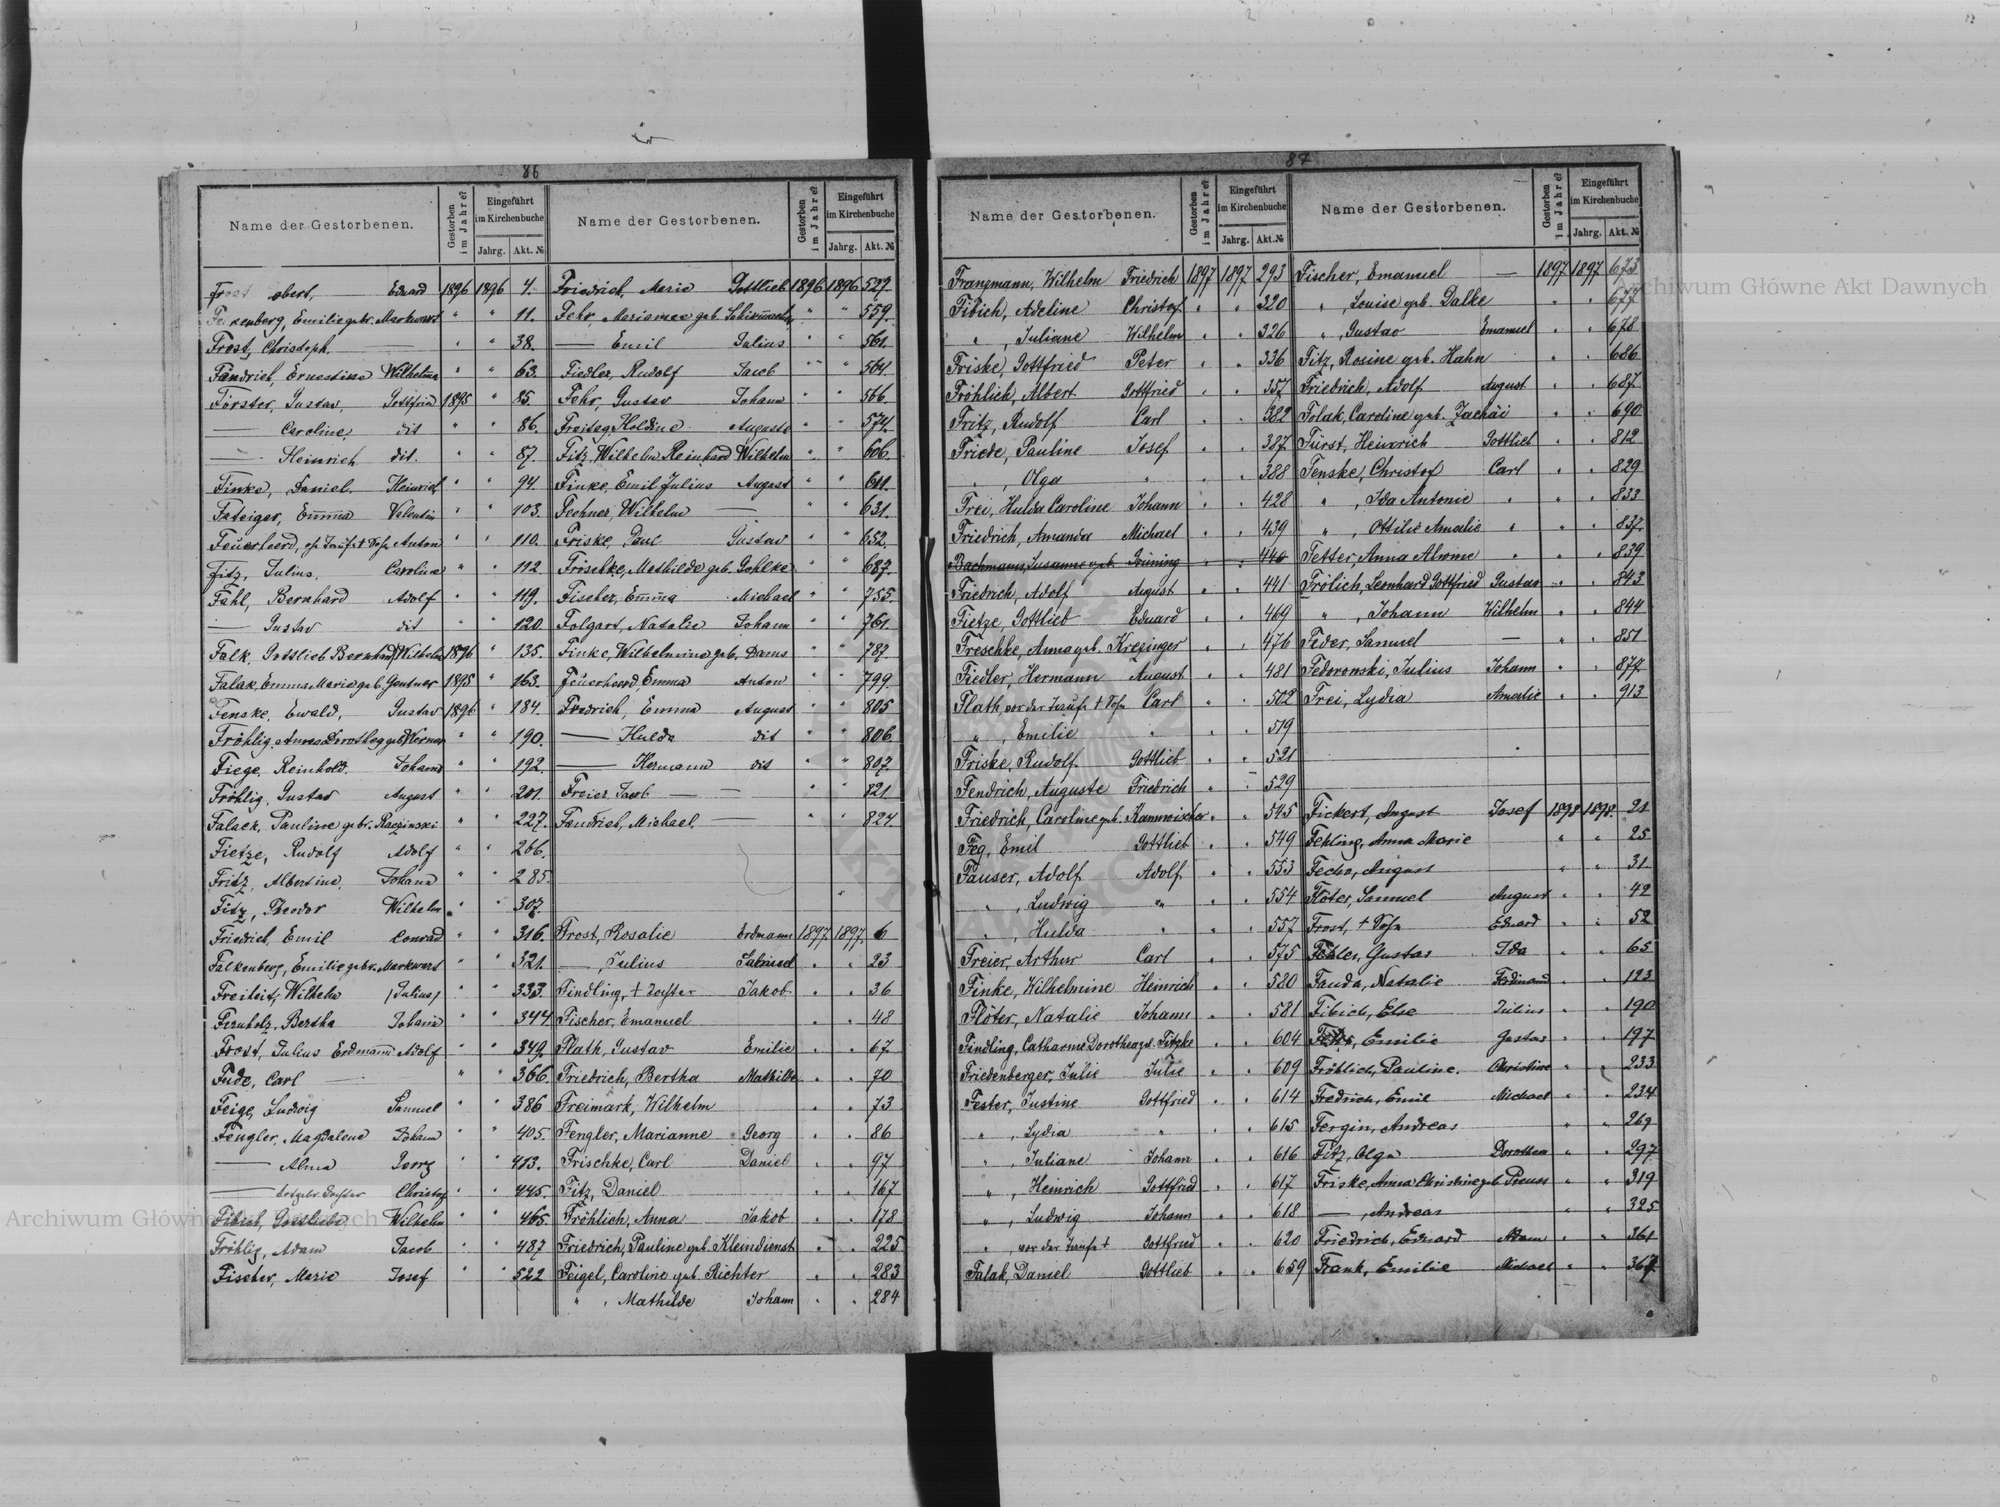 86
Name der Gestorbenen. Gestorben im Jahre? Eingeführt im Kirchenbuche Jahrg. Akt. №
Eduard 1896 1896 4.
Emilie geb. Markwart " " 11.
Frost, Christoph — " " 38.
Fandrich, Ernestine Wilhelmine " " 63.
Förster, Gustav, Gottfried 1895 " 85.
— Caroline, dit " " 86.
— Heinrich dit. " " 87.
Finke, Daniel. Heinrich " " 94.
Fateiger, Emma Valentin " " 103.
Feuerheerd, Anton " " 110.
Fitz, Julius, Carolina " " 112
Fahl, Bernhard Adolf " " 119.
— Gustav dit " " 120
Falk, Gottlieb Bernhard Wilhelm 1896 " 135.
Falak, Emma Marie geb. Gentner 1895 " 163.
Fenske, Ewald, Gustav 1896 " 184.
Fröhlig, Dorothea geb. Werner " " 190.
Fiege, Reinhold. Johann " " 192.
Fröhlig, Gustav August " " 201.
Falack, Pauline gebr. Raczinski " " 227.
Fietze, Rudolf Adolf " " 266.
Fritz, Albertine, Johann " " 285.
Fitz, Theodor Wilhelm " " 307.
Friedrich, Emil Conrad " " 316.
Falkenberg, Emilie gebr. Markwart " " 321.
Freiheit, Wilhelm /Julius/ " " 333.
Fernholz, Bertha Johann " " 344
Frost, Julius Erdmann Adolf " " 349.
Fude, Carl — " " 366.
Feige, Ludwig Samuel " " 386
Fengler, Magdalene Johann " " 405.
— Alma Georg " " 413.
— Christof " " 445.
Fibich, Gottliebe, Wilhelm " " 465.
Fröhlig, Adam Jacob " " 487
Fischer, Marie Josef " " 522
Name der Gestorbenen. Gestorben im Jahre? Eingeführt im Kirchenbuche Jahrg. Akt. №
Friedrich, Marie Gottlieb 1896 1896 527.
Fehr, geb. " " 559.
— Emil Julius " " 561.
Fiedler, Rudolf Jacob " " 564.
Fehr, Gustav Johann " " 566.
Freitag, Holdine Auguste " " 574.
Fitz, Wilhelm Reinhard Wilhelm " " 606.
Finke, Emil Julius August " " 611.
Fechner, Wilhelm — " " 631.
Friske, Paul Gustav " " 652.
Frischke, Mathilde geb. Gohlke " " 687.
Fischer, Emma Michael " " 755.
Folgart, Natalie Johann " " 761.
Finke, Wilhelmine geb. Dams " " 787.
Feuerheerd, Emma Anton " " 799.
Fredrich, Emma August " " 805
— Hulda dit " " 806
— Hermann dit " " 807.
Freier, Jacob — " " 821
Fandrich, Michael, — " " 824
Frost, Rosalie Erdmann 1897 1897. 6
—, Julius " " 23
Findling, † Tochter Jakob " " 36
Fischer, Emanuel " " 48
Flath, Gustav Emilie " " 67
Friedrich, Bertha Mathilde " " 70
Freimark, Wilhelm " " 73
Fengler, Marianne Georg " " 86
Frischke, Carl Daniel " " 97
Fitz, Daniel " " 167
Fröhlich, Anna Jakob " " 178
Friedrich, Pauline geb. Kleindienst " " 225
Feigel, Caroline geb. Richter " " 283
" , Mathilde Johann " " 284
87
Name der Gestorbenen. Gestorben im Jahre? Eingeführt im Kirchenbuche Jahrg. Akt. №
Franzmann, Wilhelm Friedrich 1897 1897 293
Fibich, Adeline Christof " " 320
" , Juliane Wilhelm " " 326
Friske, Gottfried Peter " " 336
Fröhlich, Albert Gottfried " " 357
Fritz, Rudolf Carl " " 382
Friede, Pauline Josef " " 387
" , Olga " " 388
Frei, Hulda Caroline Johann " " 428
Friedrich, Amanda Michael " " 439
Bachmann, Susanne geb. Grüning " " 440
Friedrich, Adolf August " " 441
Fietze, Gottlieb Eduard " " 469
Freschke, Anna geb. Krezinger " " 476
Fiedler, Hermann August " " 481
Flath, vor der Taufe † Sohn Carl " " 502
" , Emilie " " " 519
Friske, Rudolf Gottlieb " " 521
Fendrich, Auguste Friedrich " " 529
Friedrich, Caroline geb. Kannwischer " " 545
Feg, Emil Gottlieb " " 549
Fauser, Adolf Adolf " " 553
" , Ludwig " " " 554
" , Hulda " " " 557
Freier, Arthur Carl " " 575
Finke, Wilhelmine Heinrich " " 580
Flöter, Natalie Johann " " 581
Findling, Catharina Dorothea geb. Fitzke " " 604
Friedenberger, Julie Julie " " 609
Fester, Justine Gottfried " " 614
" , Lydia " " " 615
" , Juliane Johann " " 616
" , Heinrich Gottfried " " 617
" , Ludwig Johann " " 618
" , vor der Taufe † Gottfried " " 620
Falak, Daniel Gottlieb " " 659
Name der Gestorbenen. Gestorben im Jahre? Eingeführt im Kirchenbuche Jahrg. Akt. №
Fischer, Emanuel — 1897 1897 673
" , Louise geb. Dalke " " 677
" , Gustav Emanuel " " 678
Fitz, Rosine geb. Hahn " " 686
Friedrich, Adolf August " " 687
Folak, Caroline geb. Zachäi " " 690
Fürst, Heinrich Gottlieb " " 812
Fenske, Christof Carl " " 829
" , Ida Antonie " " " 833
" , Ottilie Amalie " " " 837
Fetter, Anna Alwine " " " 839
Frölich, Leonhard Gottfried Gustav " " 843
" , Johann Wilhelm " " 844
Feder, Samuel — " " 851
Fedorowski, Julius Johann " " 877
Frei, Lydia Amalie " " 913
Fickert, August Josef 1898 1898. 21
Fehling, Anna Marie " " 25
Fechn, August " " 31
Flöter, Samuel August " " 42
Frost, † Sohn Eduard " " 52
Gustav Ida " " 65
Fauda, Natalie Ferdinand " " 123
Fibich, Else Julius " " 190
Emilie Gustav " " 197
Fröhlich, Pauline. Christine " " 233
Fredrich, Emil Michael " " 234
Fergin, Andreas " " 269
Fitz, Olga Dorothea " " 297
Friske, Anna Christine geb. Preuss " " 319
—, Andreas " " 325
Friedrich, Eduard Adam " " 361
Frank, Emilie Michael " " 367
Archiwum Główne Akt Dawnych
Archiwum Główne Akt Dawnych